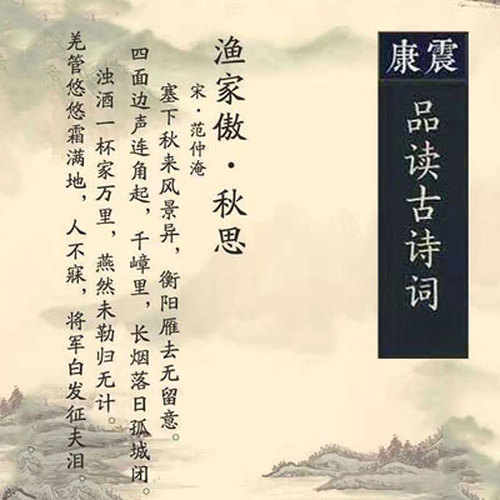 康震
品读古诗词
渔家傲·秋思
宋·范仲淹
塞下秋来风景异，衡阳雁去无留意。
四面边声连角起，千嶂里，长烟落日孤城闭。
浊酒一杯家万里，燕然未勒归无计。
羌管悠悠霜满地，人不寐，将军白发征夫泪。